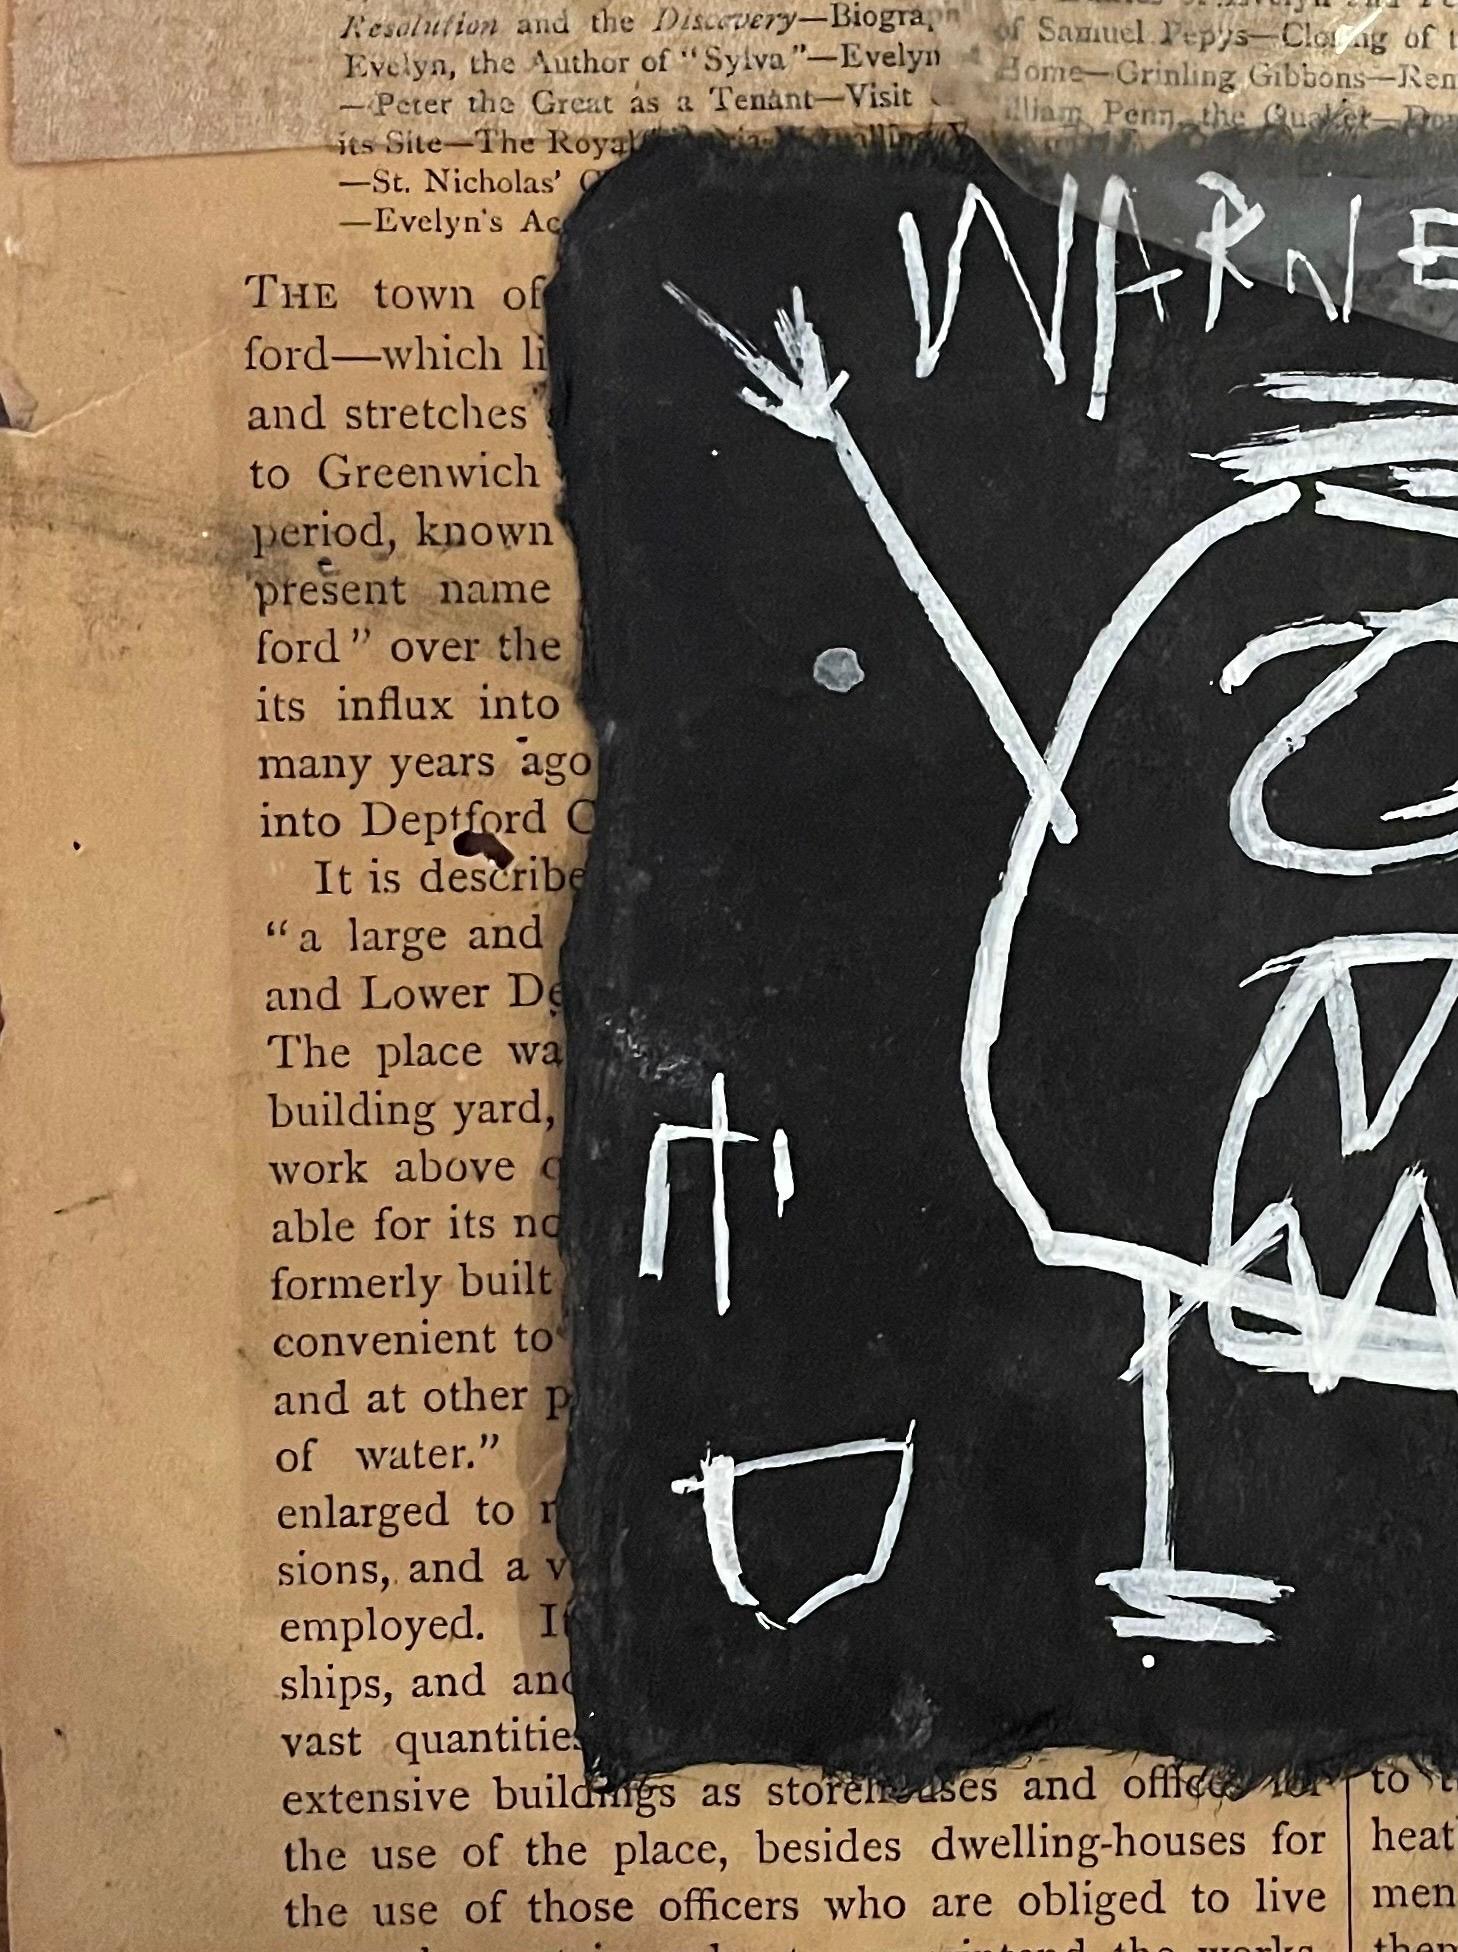 Resolution and the Discovery—Biogra
Evelyn, the Author of "Sylva"—Evelyn
—Peter the Great as a Tenant—Visit
its Site—The Royal
—St. Nicholas'
—Evelyn's Ac
of Samuel Pepys—Closing of t
Home—Grinling Gibbons—Rem
illiam Penn, the Quaker—
WARNE
THE town of
ford—which li
and stretches
to Greenwich
period, known
present name
ford" over the
its influx into
many years ago
into Deptford C
It is describe
"a large and
and Lower De
The place wa
building yard,
work above
able for its no
formerly built
convenient to
and at other p
of water."
enlarged to
sions, and a v
employed. It
ships, and and
vast quantities
extensive buildings as storehouses and offices for
the use of the place, besides dwelling-houses for
the use of those officers who are obliged to live
the works
to t
heat
men
them